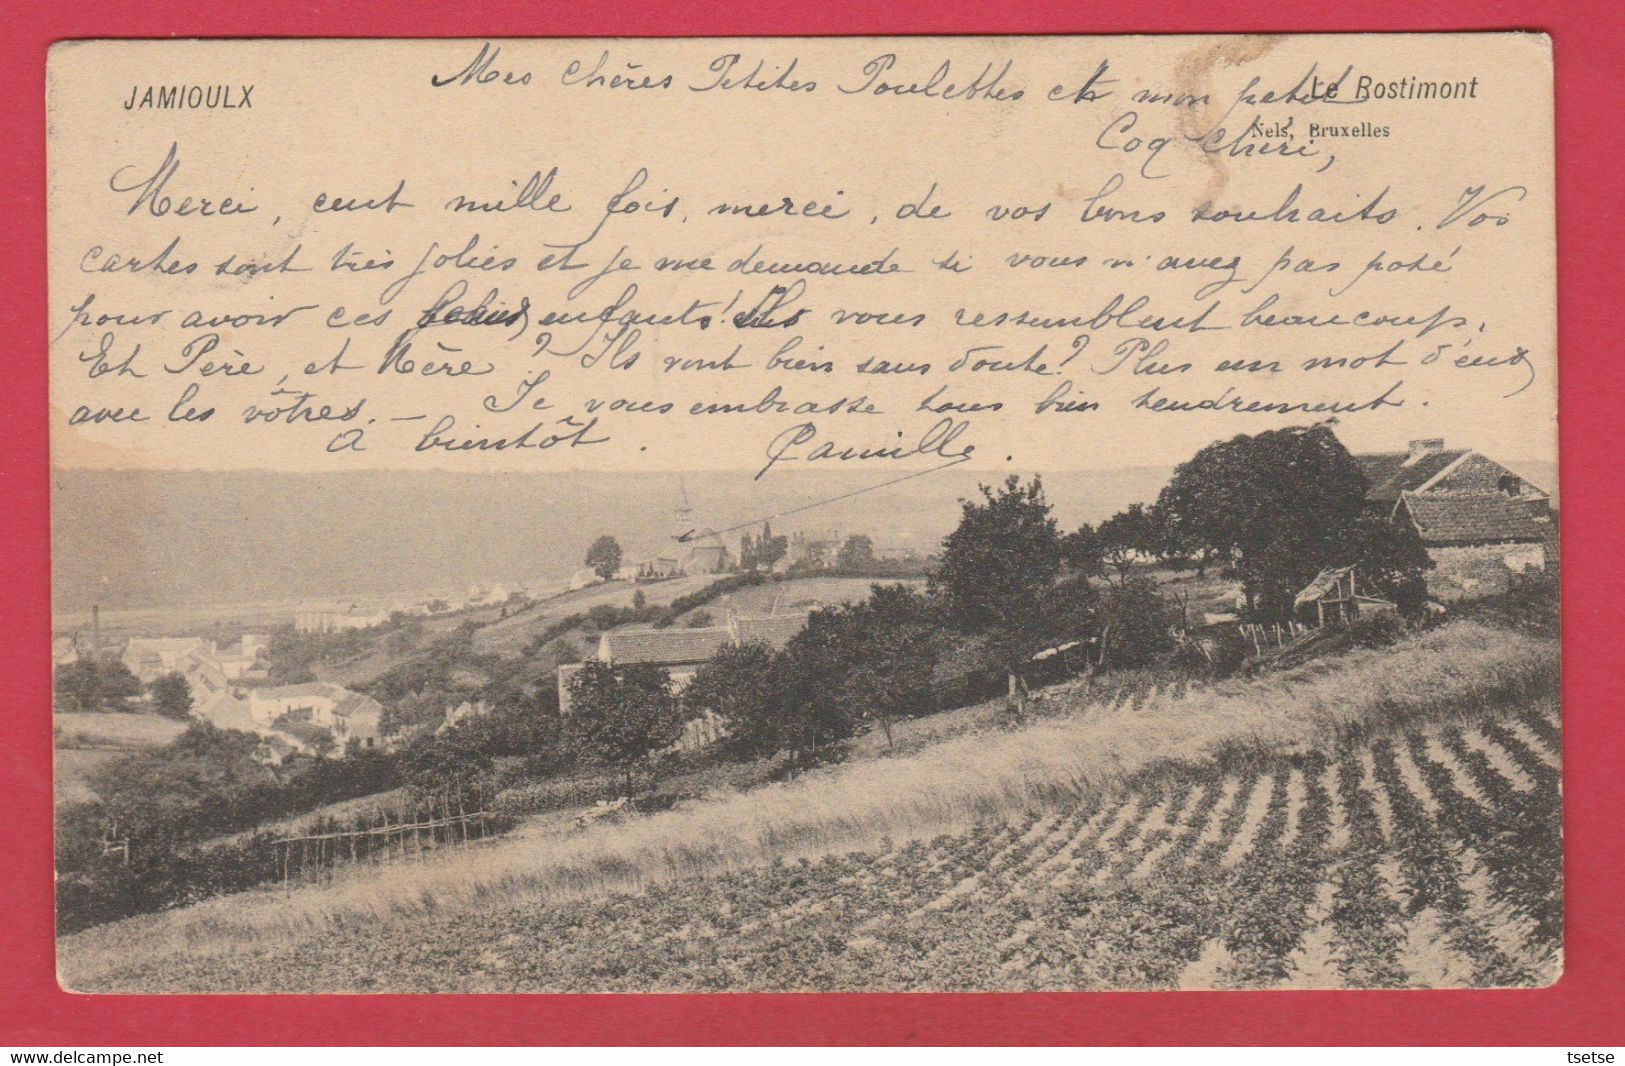 JAMIOULX
Le Rostimont
Nels, Bruxelles
Mes chères Petites Poulettes et mon petit
Coq chéri,
Merci, cent mille fois, merci, de vos bons souhaits. Vos
cartes sont très jolies et je me demande si vous n'avez pas posé
pour avoir ces enfants! Ils vous ressemblent beaucoup.
Et Père, et Mère? Ils vont bien sans doute? Plus un mot d'eux
avec les vôtres. — Je vous embrasse tous bien tendrement.
A bientôt. Camille.
tsetse
delcampe.net